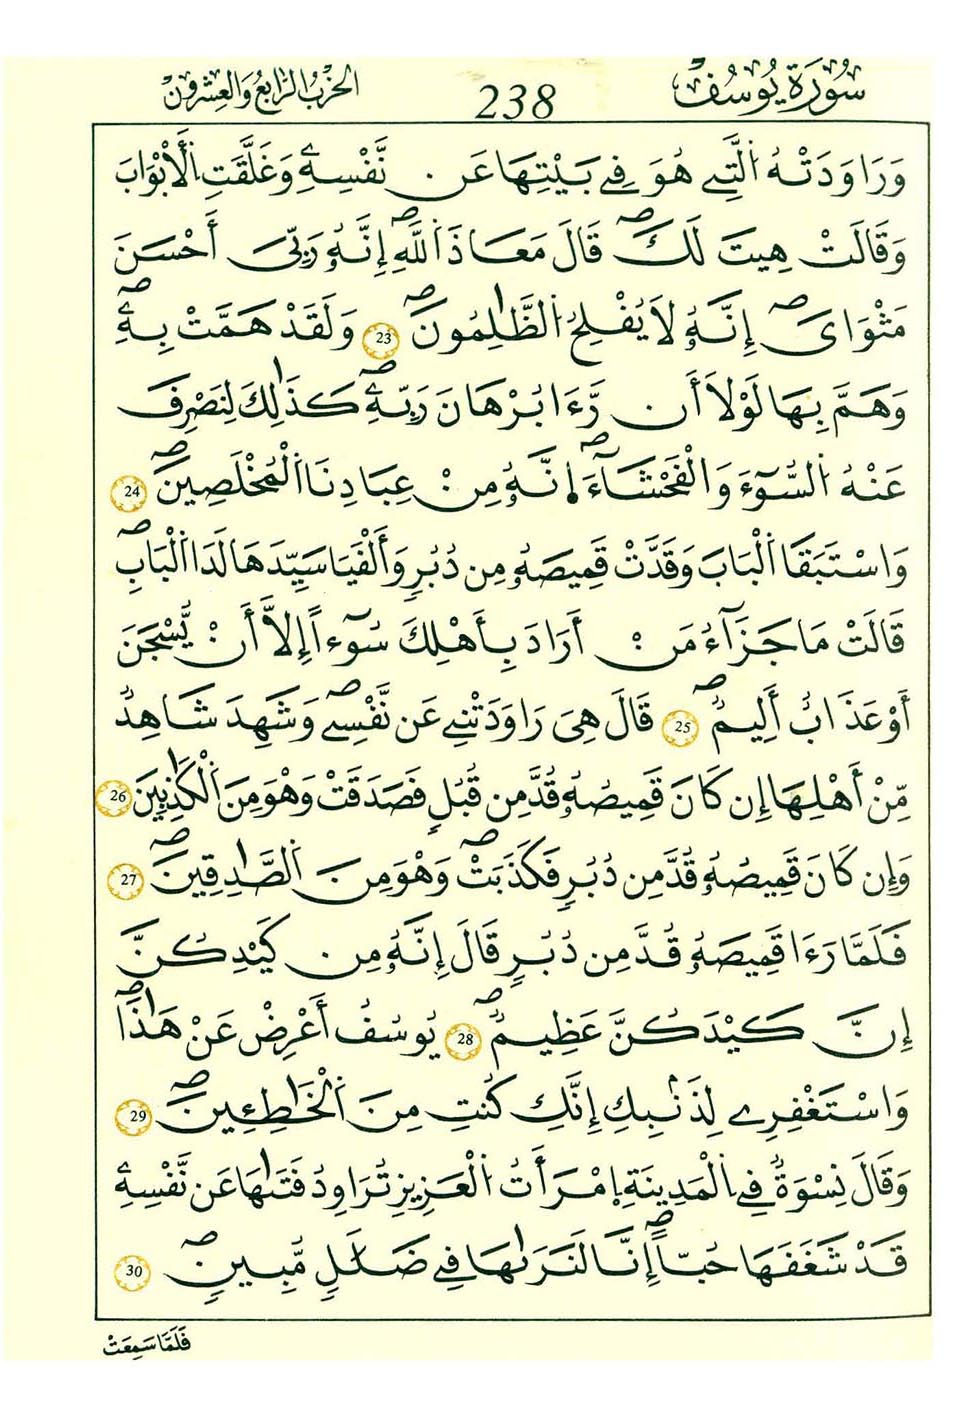 سُورَةُ يُوسُفَ 238 الحِزْبُ الرَّابِعُ وَالعِشْرُونَ
وَرَاوَدَتْهُ اُلتِے هُوَ فِے بَيْتِهَا عَن نَّفْسِهِۦ وَغَلَّقَتِ اِلْأَبْوَابَ
وَقَالَتْ هِيتَ لَكَۖ قَالَ مَعَاذَ اَللَّهِۖ إِنَّهُۥ رَبِّيَ أَحْسَنَ
مَثْوَايَۖ إِنَّهُۥ لَا يُفْلِحُ اُلظَّٰلِمُونَۖ 23 وَلَقَدْ هَمَّتْ بِهِۦۖ
وَهَمَّ بِهَا لَوْلَا أَن رَّءَا بُرْهَانَ رَبِّهِۦۖ كَذَٰلِكَ لِنَصْرِفَ
عَنْهُ اُلسُّوٓءَ وَالْفَحْشَآءَۖ اِنَّهُۥ مِنْ عِبَادِنَا اَلْمُخْلَصِينَۖ 24
وَاسْتَبَقَا اَلْبَابَ وَقَدَّتْ قَمِيصَهُۥ مِن دُبُرٍ وَأَلْفَيَا سَيِّدَهَا لَدَا اَلْبَابِۖ
قَالَتْ مَا جَزَآءُ مَنْ أَرَادَ بِأَهْلِكَ سُوٓءاً إِلَّا أَنْ يُّسْجَنَ
أَوْ عَذَابٌ أَلِيمٌۖ 25 قَالَ هِيَ رَاوَدَتْنِے عَن نَّفْسِےۖ وَشَهِدَ شَاهِدٌ
مِّنْ أَهْلِهَا إِن كَانَ قَمِيصُهُۥ قُدَّ مِن قُبُلٍ فَصَدَقَتْ وَهْوَ مِنَ اَلْكَٰذِبِينَ 26
وَإِن كَانَ قَمِيصُهُۥ قُدَّ مِن دُبُرٍ فَكَذَبَتْۖ وَهْوَ مِنَ اَلصَّٰدِقِينَۖ 27
فَلَمَّا رَءَا قَمِيصَهُۥ قُدَّ مِن دُبُرٍ قَالَ إِنَّهُۥ مِن كَيْدِكُنَّ
إِنَّ كَيْدَكُنَّ عَظِيمٌۖ 28 يُوسُفُ أَعْرِضْ عَنْ هَٰذَاۖ
وَاسْتَغْفِرِے لِذَنۢبِكِ إِنَّكِ كُنتِ مِنَ اَلْخَٰطِـِٕينَۖ 29
وَقَالَ نِسْوَةٌ فِے اِلْمَدِينَةِ اِمْرَأَتُ اُلْعَزِيزِ تُرَاوِدُ فَتَىٰهَا عَن نَّفْسِهِۦ
قَدْ شَغَفَهَا حُبّاًۖ إِنَّا لَنَرَىٰهَا فِے ضَلَٰلٍ مُّبِينٍۖ 30
فَلَمَّا سَمِعَتْ